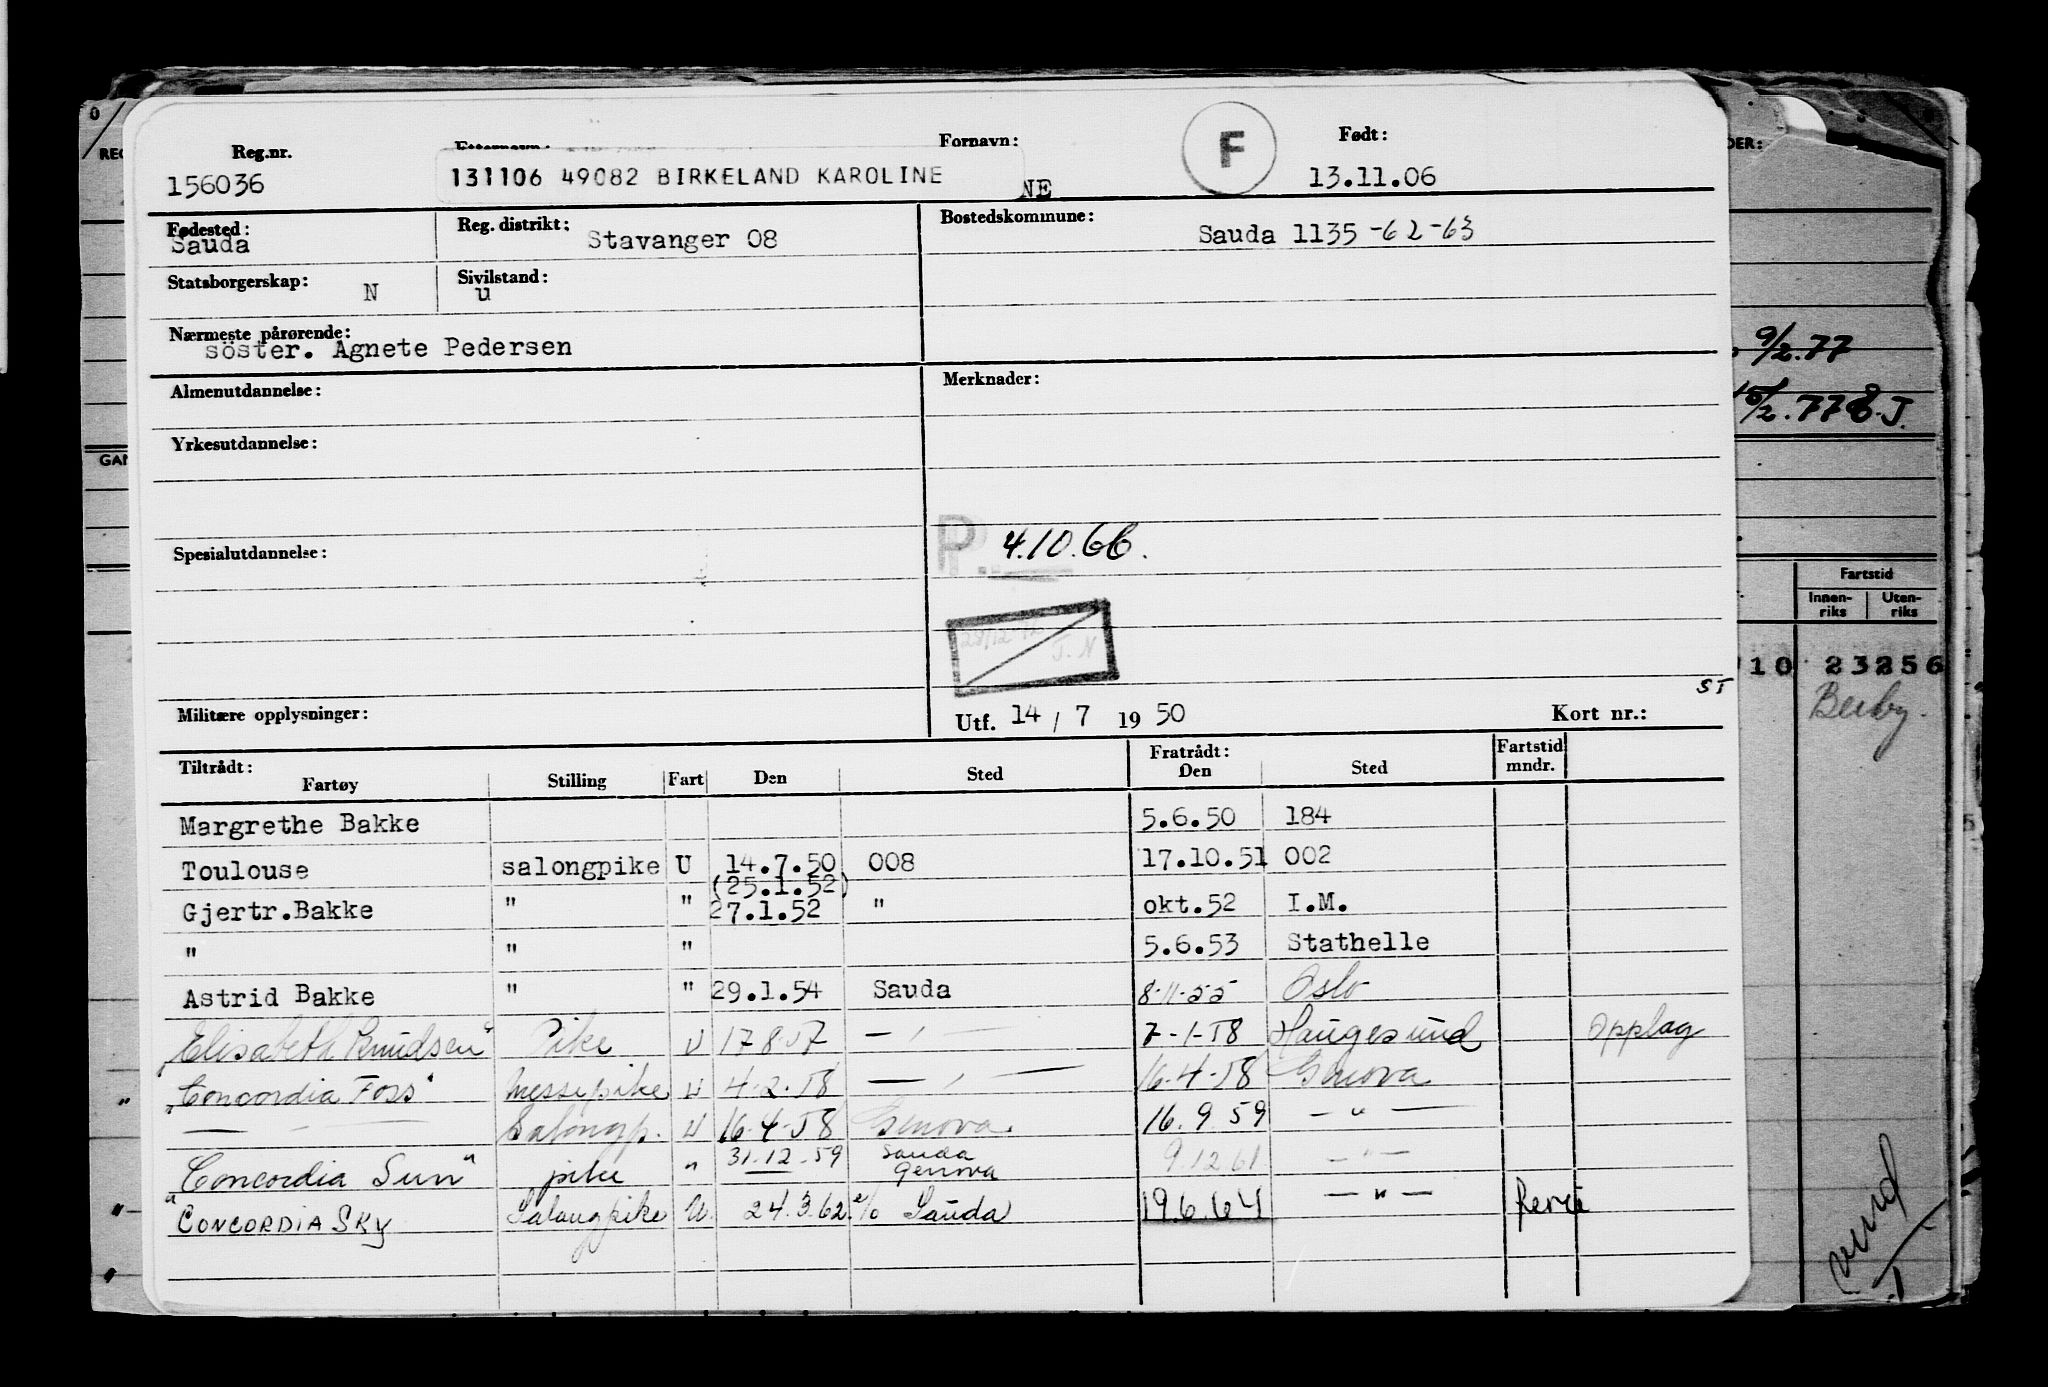 Reg.nr. Fornavn: F Født:
156036 131106 49082 BIRKELAND KAROLINE NE 13.11.06
Fødested: Reg. distrikt: Bostedskommune:
Sauda Stavanger 08 Sauda 1135 -62-63
Statsborgerskap: N Sivilstand: u
Nærmeste pårørende:
söster. Agnete Pedersen
Almenutdannelse: Merknader:
Yrkesutdannelse:
Spesialutdannelse: P. 4.10.66.
28/12 J.N
Militære opplysninger: Utf. 14 / 7 19 50 Kort nr.: ST
Tiltrådt: Fratrådt: Fartstid
Fartøy Stilling Fart Den Sted Den Sted mndr.
Margrethe Bakke 5.6.50 184
Toulouse salongpike U 14.7.50 008 17.10.51 002
(25.1.52)
Gjertr.Bakke " " 27.1.52 " okt.52 I.M.
" " " 5.6.53 Stathelle
Astrid Bakke " " 29.1.54 Sauda 8-11-55 Oslo
"Elisabeth Knudsen" Pike U 17.8.57 — , — 7-1-58 Haugesund Opplag
"Concordia Foss" Messepike U 4-2-58 — , — 16-4-58 Genova
— - — Salongp. U 16-4-58 Genova. 16.9.59 — " —
"Concordia Sun" pike " 31.12.59 Sauda Genova 9.12.61 — " —
"CONCORDIA SKY Salongpike U. 24.3.62. Sauda 19.6.64 — " — ferie
REG
GAN
DER:
9/2.77
15/2.77 J.
Fartstid
Innen-riks Uten-riks
10 23256